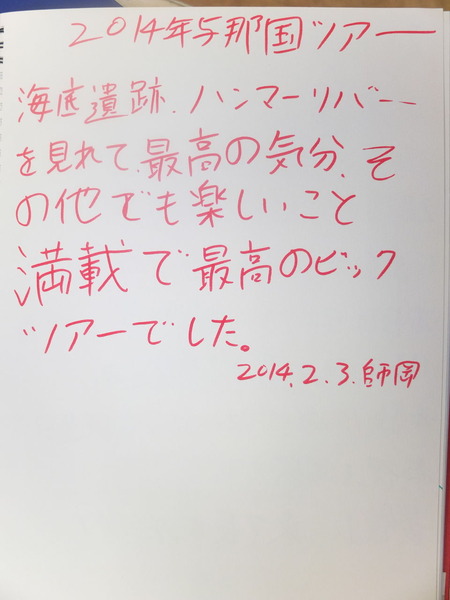 2014年与那国ツアー
海底遺跡、ハンマーリバー
を見れて、最高の気分、そ
の他でも楽しいこと
満載で最高のビック
ツアーでした。
2014.2.3.師岡